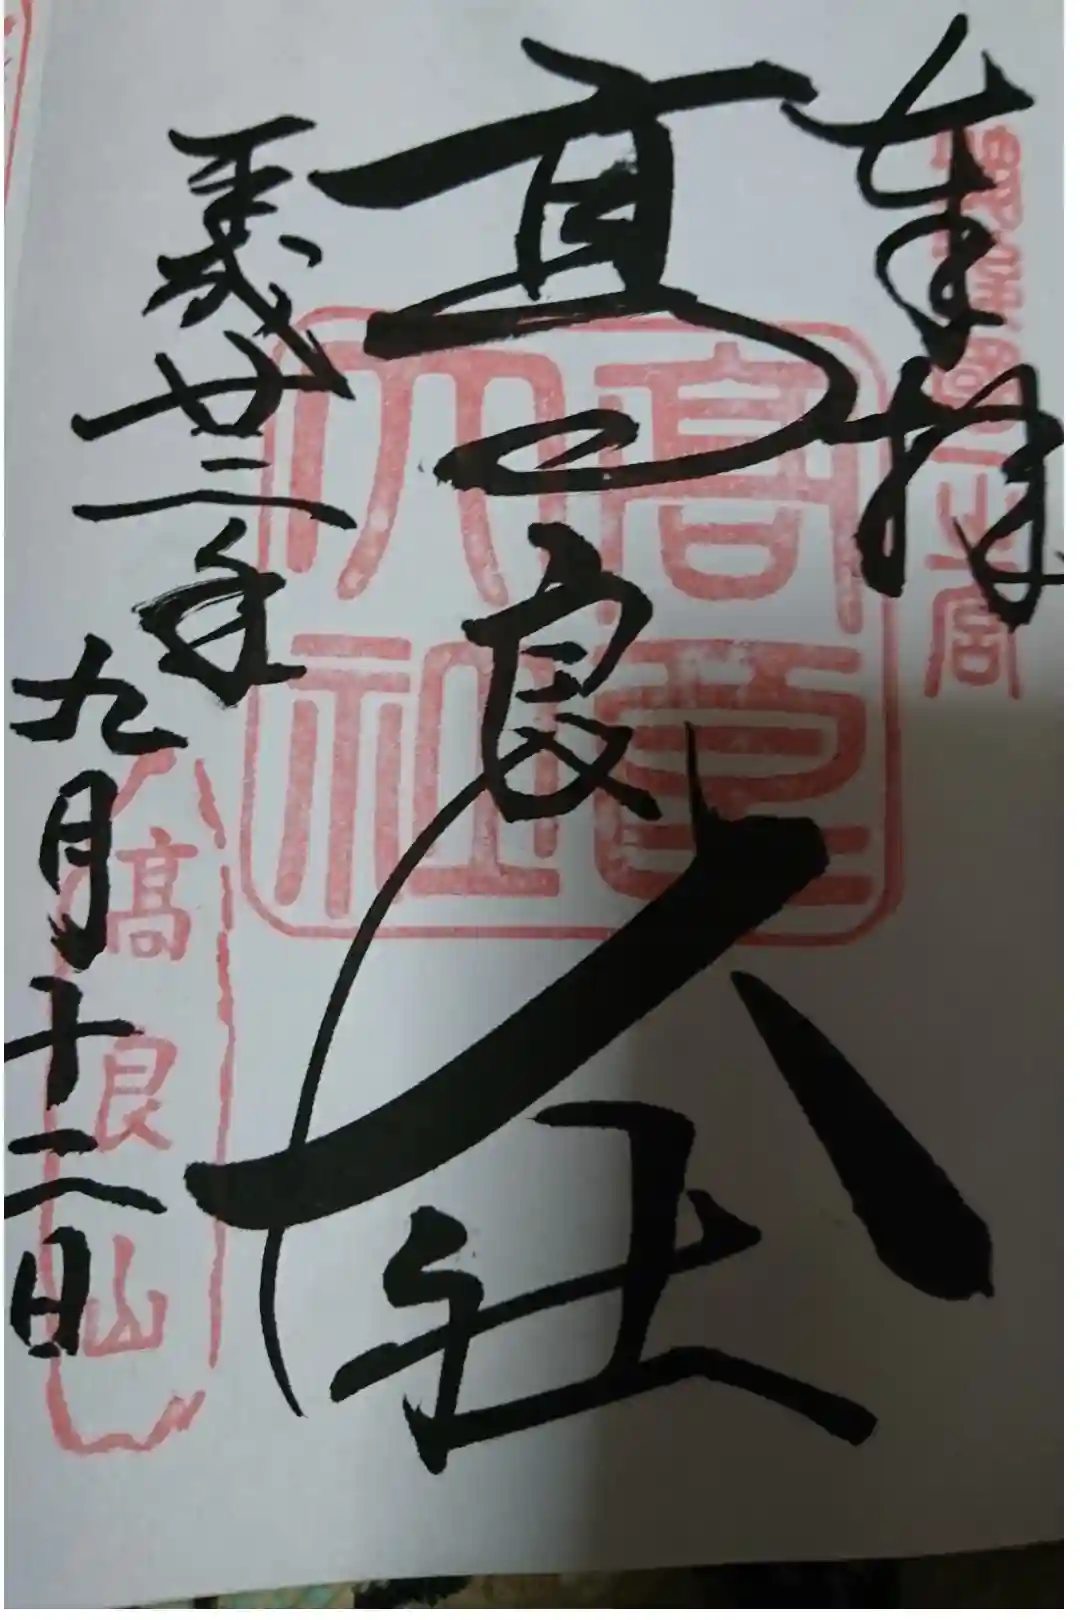 奉拝
筑後國一之宮
高良大社
高良大社
平成廿三年九月十二日
高良山